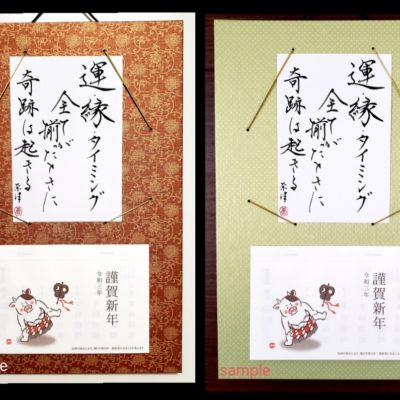 運・縁・タイミング
全てが揃ったときに
奇跡は起きる
謹賀新年
令和三年
運・縁・タイミング
全てが揃ったときに
奇跡は起きる
謹賀新年
令和三年
sample